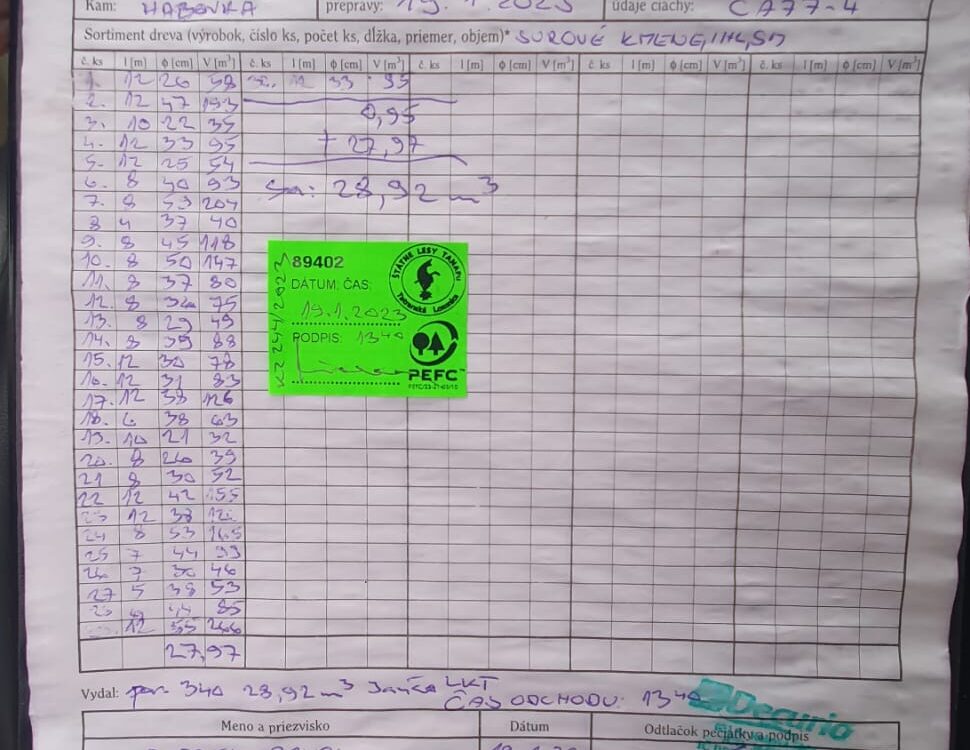 Kam: HABOVKA prepravy: 19.1.2023 údaje ciachy: CA77-4
Sortiment dreva (výrobok, číslo ks, počet ks, dĺžka, priemer, objem)* SUROVÉ KMENE, IHL, SM
č. ks l [m] ϕ [cm] V [m³] č. ks l [m] ϕ [cm] V [m³] č. ks l [m] ϕ [cm] V [m³] č. ks l [m] ϕ [cm] V [m³] č. ks l [m] ϕ [cm] V [m³]
1. 12 26 58 12 33 95
2. 12 47 193
0,95
3. 10 22 35
4. 12 33 95 + 27,97
5. 12 25 54
6. 8 40 93 Sa: 28,92 m³
7. 8 59 204
8 4 37 40
9. 8 45 118
10. 8 50 147
11. 8 37 80
12. 8 75
13. 8 29 49
14. 8 39 88
15. 12 30 78
16. 12 31 83
17. 12 38 126
18. 6 38 63
19. 10 21 32
20. 8 26 39
21 8 30 52
22 12 42 155
23 12 38
24 8 53 165
25 7 44 99
26 7 30 46
27 5 38 53
85
12 55 266
27,97
89402
DÁTUM: ČAS:
19.1.2023
PODPIS: 13 40
ŠTÁTNE LESY TANAPU
Tatranská Lomnica
PEFC™
Vydal: por 340 28,92 m³ LKT
ČAS ODCHODU: 13 40
Decurio
Meno a priezvisko Dátum Odtlačok pečiatky a podpis